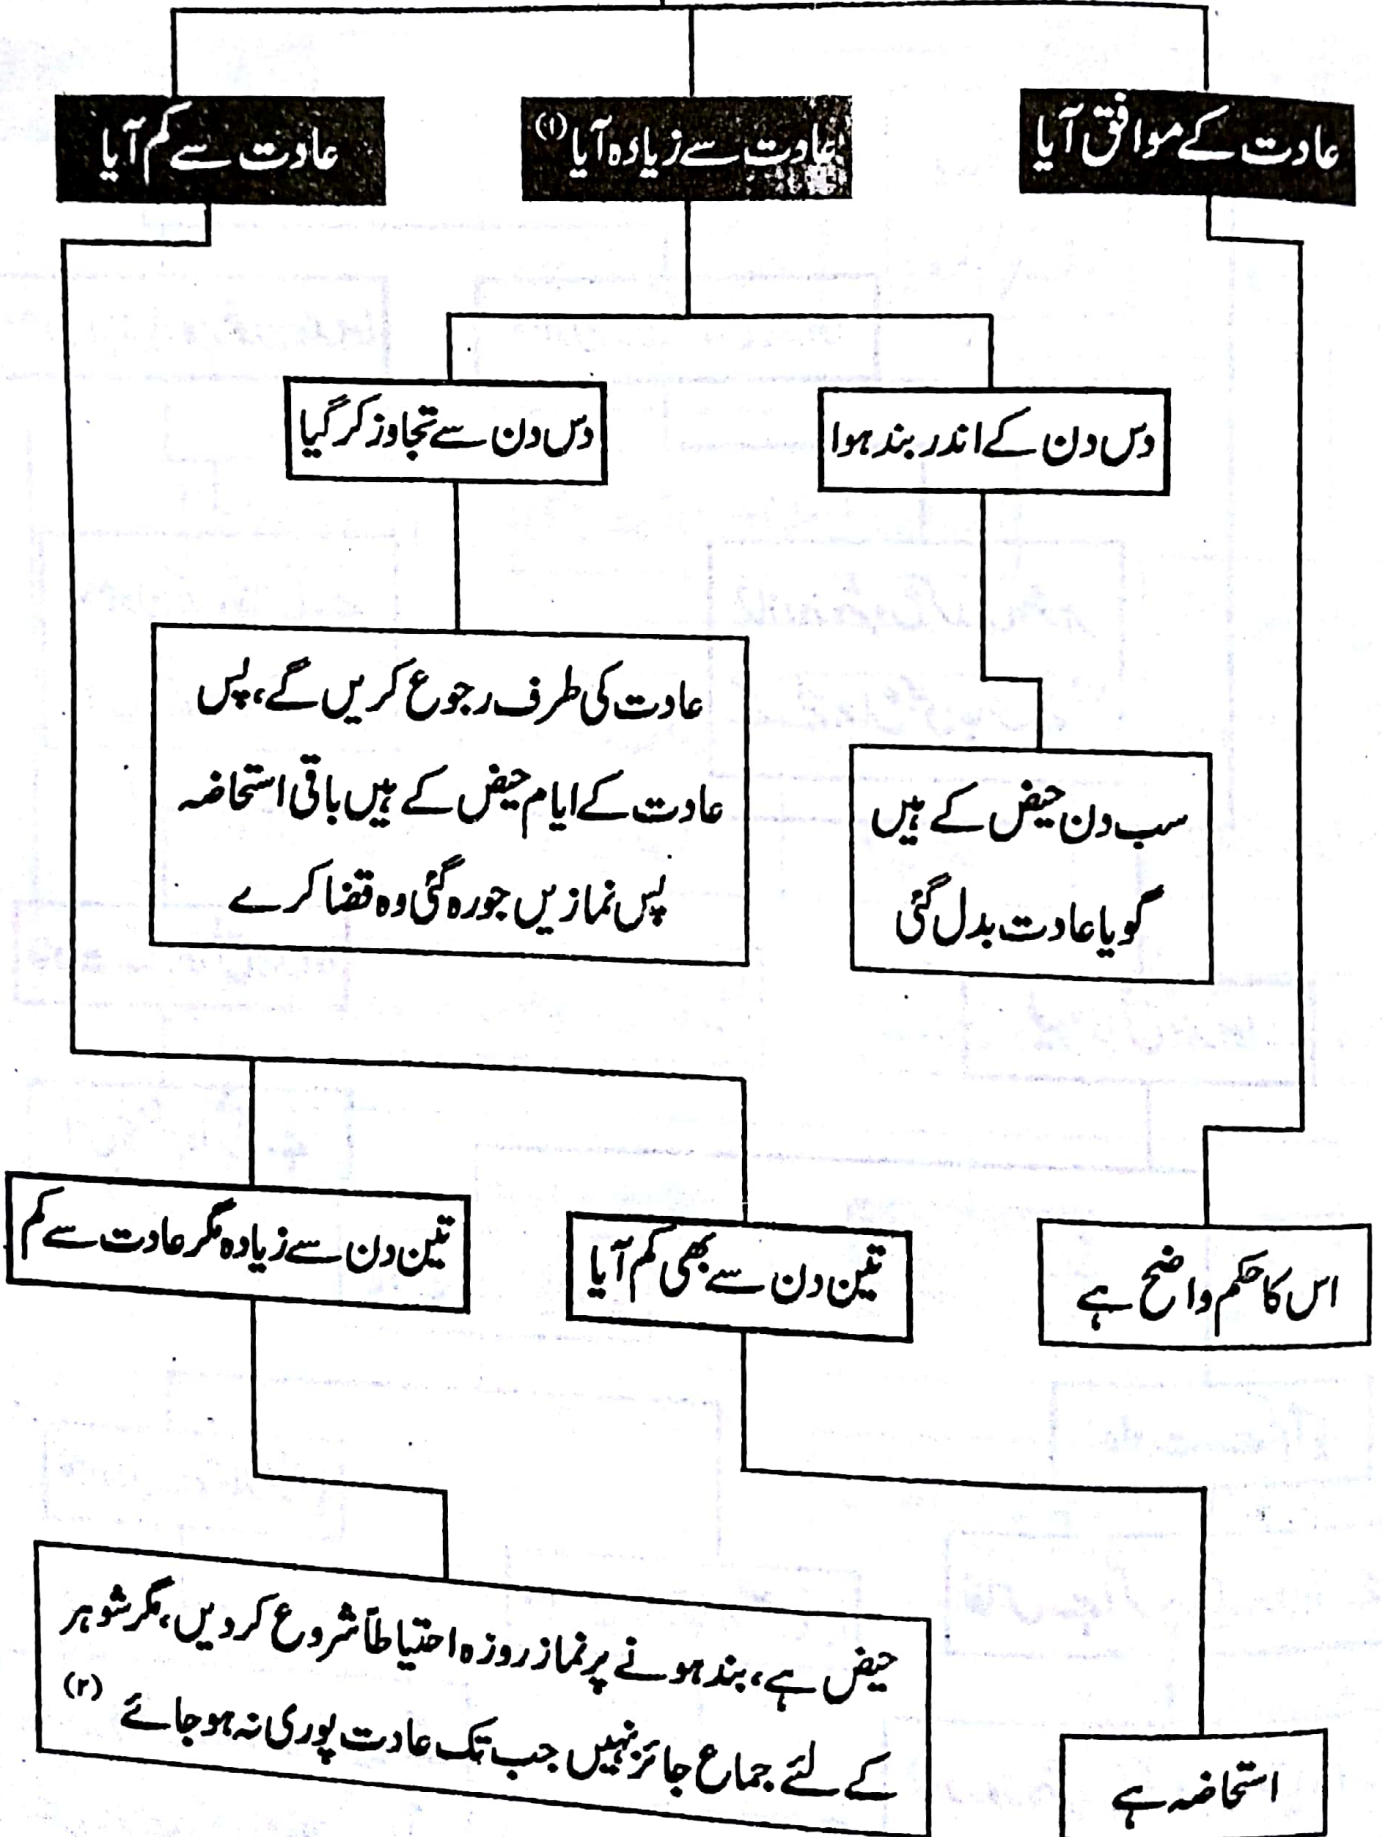 عادت کے موافق آیا
عادت سے زیادہ آیا (۱)
عادت سے کم آیا
دس دن کے اندر بند ہوا
دس دن سے تجاوز کر گیا
سب دن حیض کے ہیں
گویا عادت بدل گئی
عادت کی طرف رجوع کریں گے، پس
عادت کے ایام حیض کے ہیں باقی استحاضہ
پس نمازیں جو رہ گئی وہ قضا کرے
اس کا حکم واضح ہے
تین دن سے بھی کم آیا
تین دن سے زیادہ مگر عادت سے کم
حیض ہے، بند ہونے پر نماز روزہ احتیاطاً شروع کر دیں، مگر شوہر
کے لئے جماع جائز نہیں جب تک عادت پوری نہ ہو جائے (۲)
استحاضہ ہے